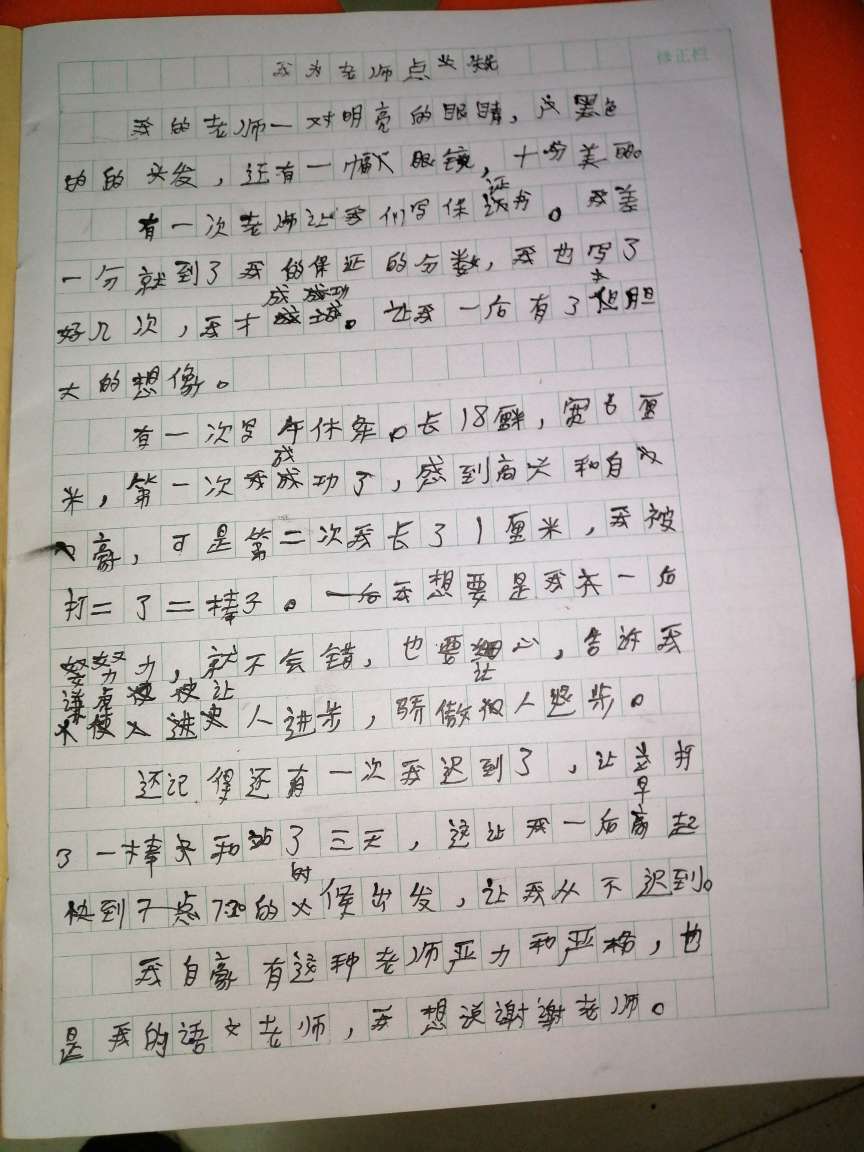 我为老师点个赞
修正栏
我的老师一对明亮的眼睛，黑色
的的头发，还有一眼镜，十分美丽。
有一次老师让我们写保证书。我差
一分就到了我的保证的分数，我也写了
好几次，我才成功。让我一后有了大胆
大的想像。
有一次写年休年。长18厘米，宽6厘
米，第一次我成功了，感到高兴和自
豪，可是第二次我长了1厘米，我被
打二了二棒子。一后我想要是我天一后
努力，就不会错，也要细心，告诉我
谦虚让人进步，骄傲被人退步。
还记得还有一次我迟到了，让老打
了一棒头和站了三天，这让我一后早起
快到7点7:30的时候出发，让我从不迟到。
我自豪有这种老师严力和严格，也
是我的语文老师，我想说谢谢老师。